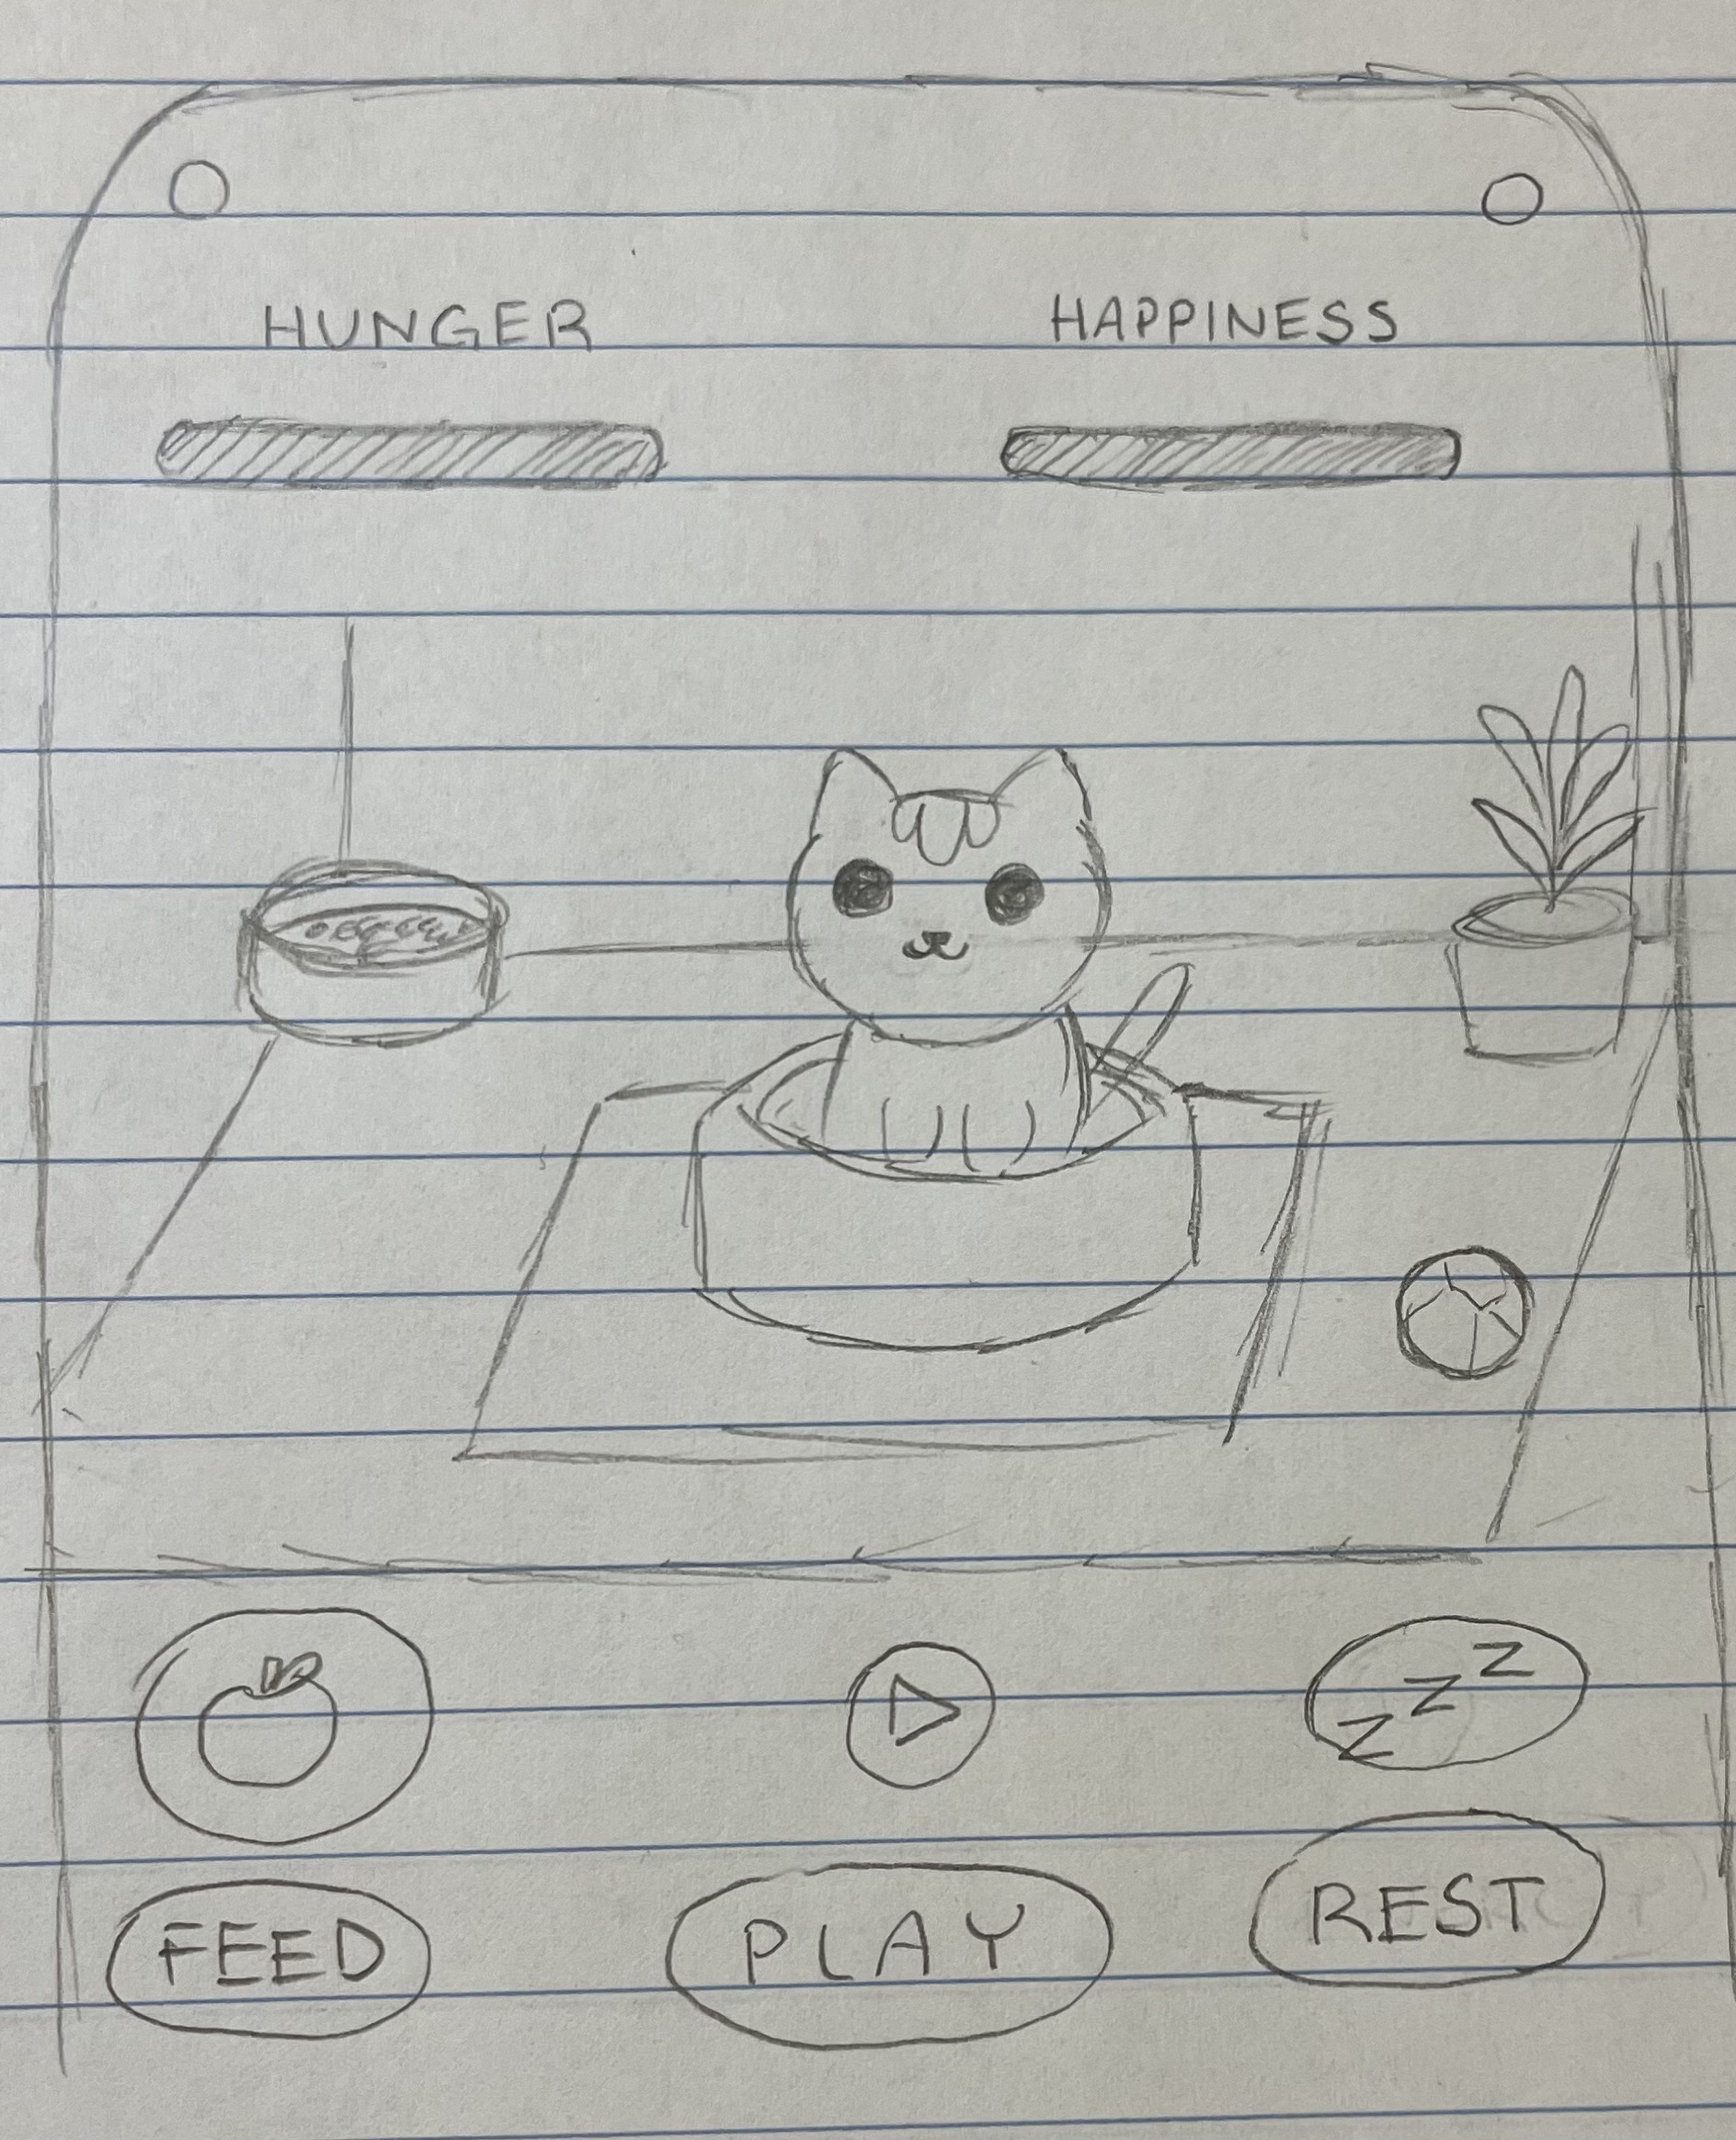 HUNGER HAPPINESS
Z Z Z
FEED PLAY REST